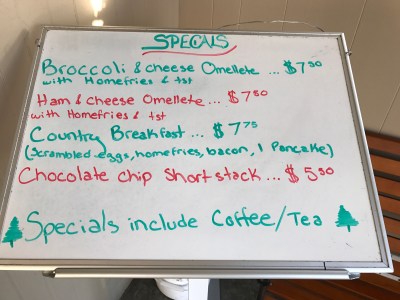 SPECIALS
Broccoli & cheese Omellete ... $7.50
with Homefries & tst
Ham & cheese Omellete ... $7.50
with Homefries & tst
Country Breakfast ... $7.75
(scrambled eggs, homefries, bacon, 1 Pancake)
Chocolate chip short stack ... $5.50
Specials include Coffee/Tea